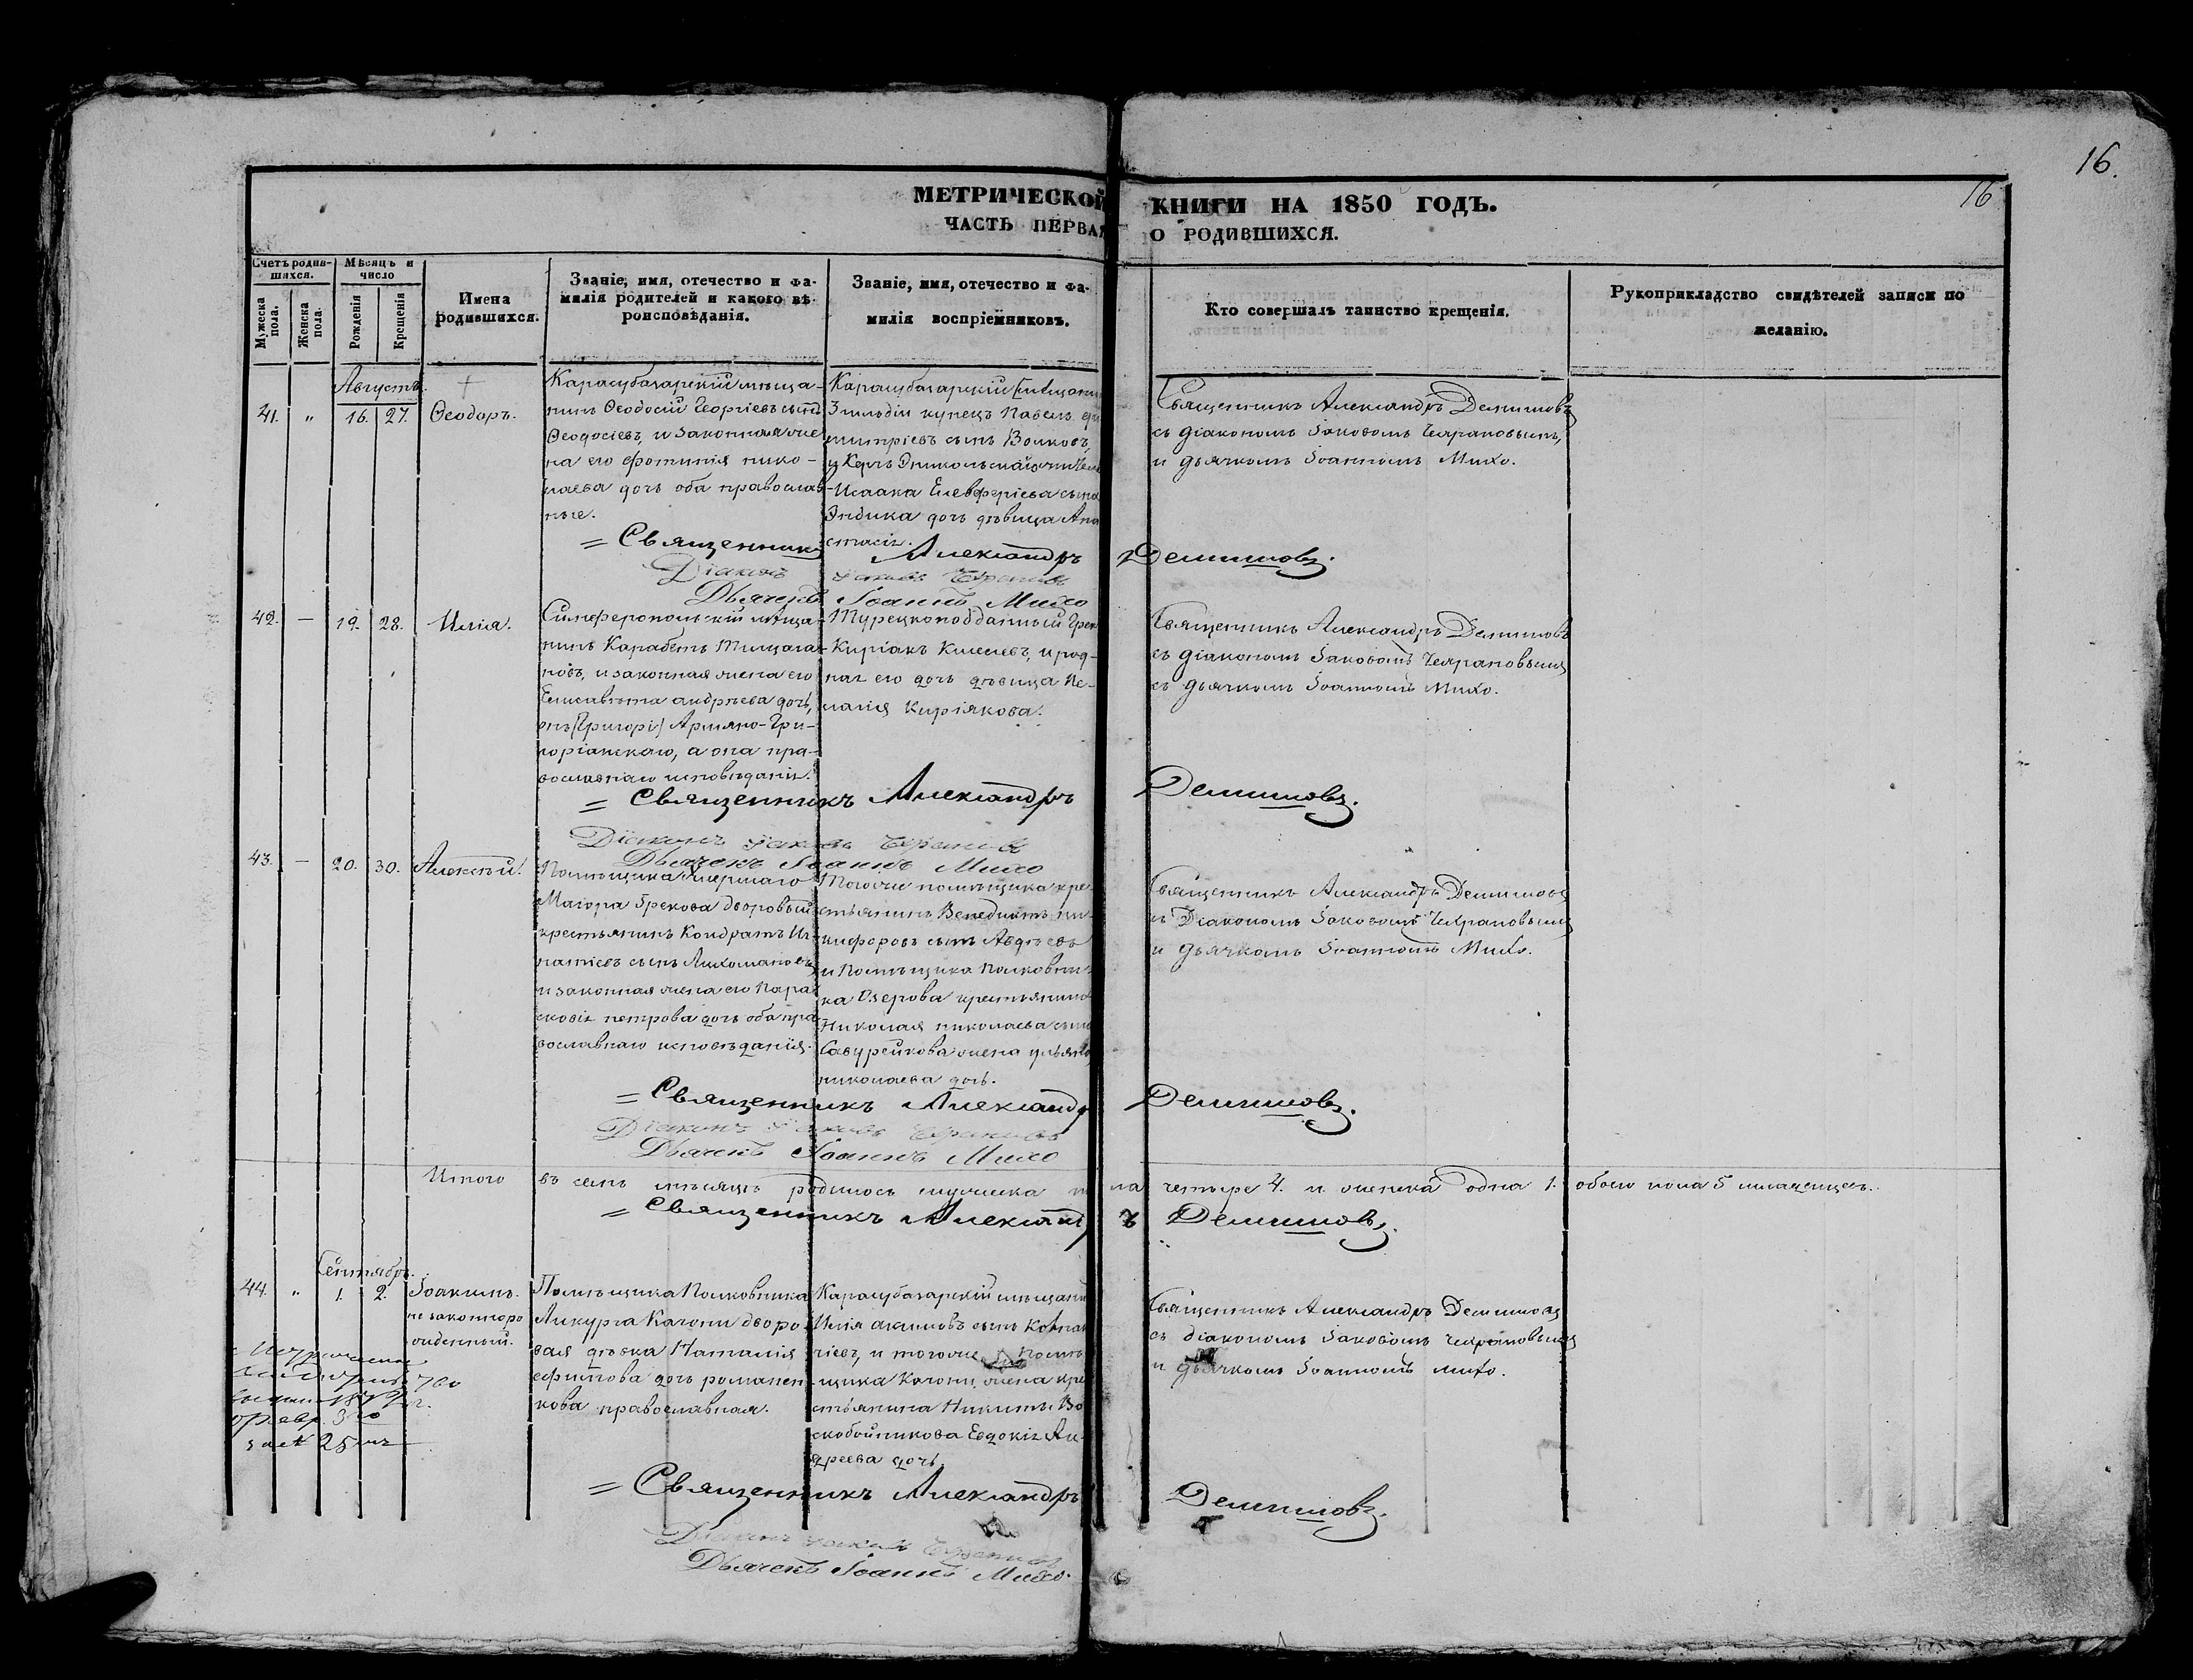 16.
16
МЕТРИЧЕСКОЙ КНИГИ НА 1850 ГОДЪ.
ЧАСТЬ ПЕРВАЯ О РОДИВШИХСЯ.
Счетъ родив-
шихся.
Мужеска пола.
Женска пола.
Мѣсяцъ и
число
Рожденія
Крещенія
Имена
родившихся.
Званіе, имя, отечество и фа-
милія родителей и какого вѣ-
роисповѣданія.
Званіе, имя, отечество и фа-
милія воспріемниковъ.
Кто совершалъ таинство крещенія.
Рукоприкладство свидѣтелей записи по
желанію.
Августъ.
41. „ 16. 27. Ѳеодоръ.
Карасубазарскій мѣща-
нинъ Ѳеодосій Георгіевъ сынъ
Ѳеодосіевъ, и законная же-
на его Фотинія нико-
лаева дочь оба православ
ные.
Карасубазарскій
купецъ Павелъ
митріевъ сынъ Волковъ,
Исаака Елевферіева сына
дочь дѣвица Ана
стасія.
Священникъ Александръ Демишовъ
съ діакономъ Іаковомъ Чехрановымъ,
и дьячкомъ Іоанномъ Михо.
= Священникъ Александръ Демишовъ.
Діаконъ Іаковъ
Дьячекъ Іоаннъ Михо
42. — 19. 28. Илія.
Симферопольскій мѣща-
нинъ Карабетъ
новъ, и законная жена его
Елисавета андреева дочь,
онъ [Григорі] Армяно-Гри-
горіанскаго, а она пра-
вославнаго исповѣданія.
Турецкоподданный Грек
Киріакъ и род-
ная его дочь дѣвица Пе-
лагія Киріякова.
Священникъ Александръ Демишовъ
съ діакономъ Іаковомъ Чехрановымъ
съ дьячкомъ Іоанномъ Михо.
= Священникъ Александръ Демишовъ.
Діаконъ Іаковъ
Дьячекъ Іоаннъ Михо
43. — 20. 30. Алексѣй.
Помѣщика умершаго
Маіора Грекова дворовый
крестьянинъ Кондратъ Иг-
натіевъ сынъ Лихомановъ
и законная жена его Пара
сковія петрова дочь оба пра
вославнаго исповѣданія.
Тогоже помѣщика кре-
стьянинъ Венедиктъ ни-
кифоровъ сынъ Авдѣевъ
и Помѣщика Полковни-
ка Озерова крестьянина
Николая николаева сына
Савурейкова жена ульяна
николаева дочь.
Священникъ Александръ Демишовъ
съ Діакономъ Іаковомъ Чехрановымъ
и дьячкомъ Іоанномъ Михо.
= Священникъ Александръ Демишовъ.
Діаконъ Іаковъ
Дьячекъ Іоаннъ Михо
Итого въ семъ мѣсяцѣ родилось мужеска пола четыре 4. и женска одна 1. обоего пола 5 младенцевъ.
= Священникъ Александръ Демишовъ.
Сентябрь.
44. „ 1. 2. Іоакимъ.
не законноро
жденный.
Помѣщика Полковника
Ликурга Качони дворо
вая дѣвка Наталія
ефимова дочь романен
кова православная.
Карасубазарскій мѣщани
Илія акимовъ сынъ
и тогоже Помѣ
щика Качони, жена кре
стьянина Никиты Во
скобойникова Евдокія Ан
дреева дочь.
Священникъ Александръ Демишовъ
съ діакономъ Іаковомъ Чехрановымъ
и дьячкомъ Іоанномъ михо.
февр. 3го
25
= Священникъ Александръ Демишовъ.
Діаконъ Іаковъ
Дьячекъ Іоаннъ Михо.